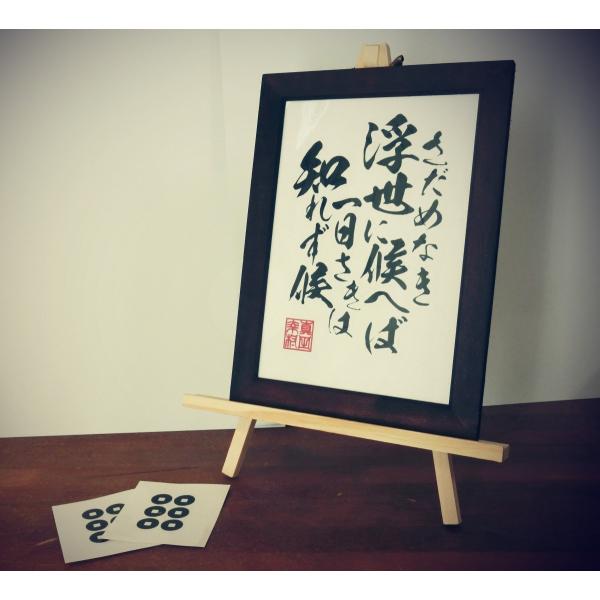 さだめなき
浮世に候へば
一日さきは
知れず候
真田
幸村